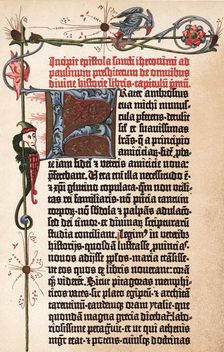 Incipit epistola sancti iheronimi ad
paulinum presbiterum de omnibus
divine historie libris. capitulū pmū.
Frater ambrosius
tua michi munus-
cula pferens. detulit
sīl et suavissimas
lrās. q̄ a principio
amicicīaȝ. fidē pba-
te iam fidei ⁊ veteris amicicie noua
pferebant. Vera enī illa necessitudo ē.
⁊ xpī glutino copulata. qm̄ non vtili-
tas rei familiaris. nō presencia tantum
corpoȝ. nō sbdola ⁊ palpās adulaco.
sed dei timor. et diuinaȝ scripturarum
studia conciliant. Legim⁹ in veterib⁹
historijs. quosdā lustrasse puincias.
nouos adijsse pplos. maria trāsisse.
ut eos quos ex libris nouerant: corā
qȝ viderēt. Sicut pitagoras memphi-
ticos vates. sic plato egiptū. ⁊ architā
tarentinū. eandemqȝ oram ytalie. que
quondā magna grecia dicebat̄: labo-
riosissime peragrauit. et ut qui athenis
mgr̄ erat. ⁊ potens. cuiusqȝ doctrinas